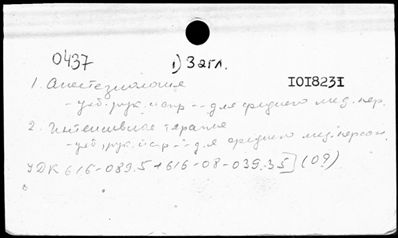 0437
1) Загл.
1018231
1. Анестезиология
- уч. рук. и спр - - для среднего мед. пер.
2. Интенсивная терапия
- уч. рук. и спр - - для среднего мед. персон.
УДК 616-089.5+616-08-039.35] (09)